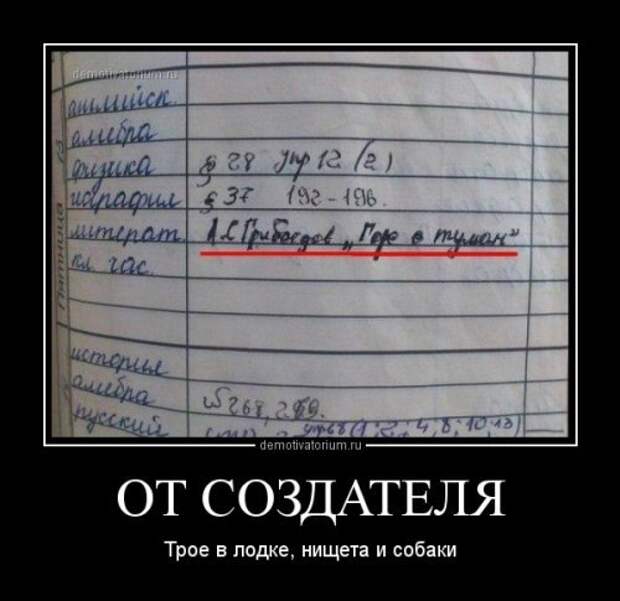 demotivatorium.ru
английск.
алгебра
физика § 28 упр 12 (2)
география § 37 192-196.
литерат. А.С Грибоедов „Горе о туман"
кл. час.
Пятница
история
алгебра № 268, 269.
русский упр68(1; 2; 4; 8; 10-13)
demotivatorium.ru
ОТ СОЗДАТЕЛЯ
Трое в лодке, нищета и собаки